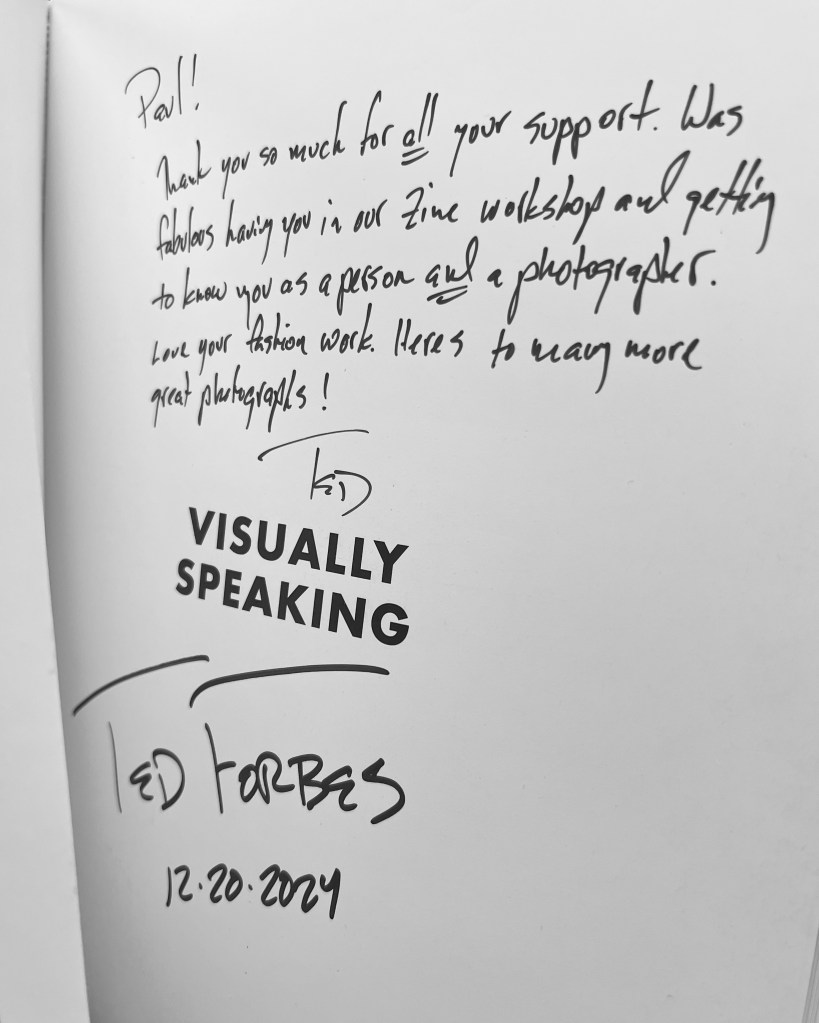 Paul!
Thank you so much for all your support. Was
fabulous having you in our Zine workshop and getting
to know you as a person and a photographer.
Love your fashion work. Heres to many more
great photographs!
TED
VISUALLY
SPEAKING
TED FORBES
12.20.2024